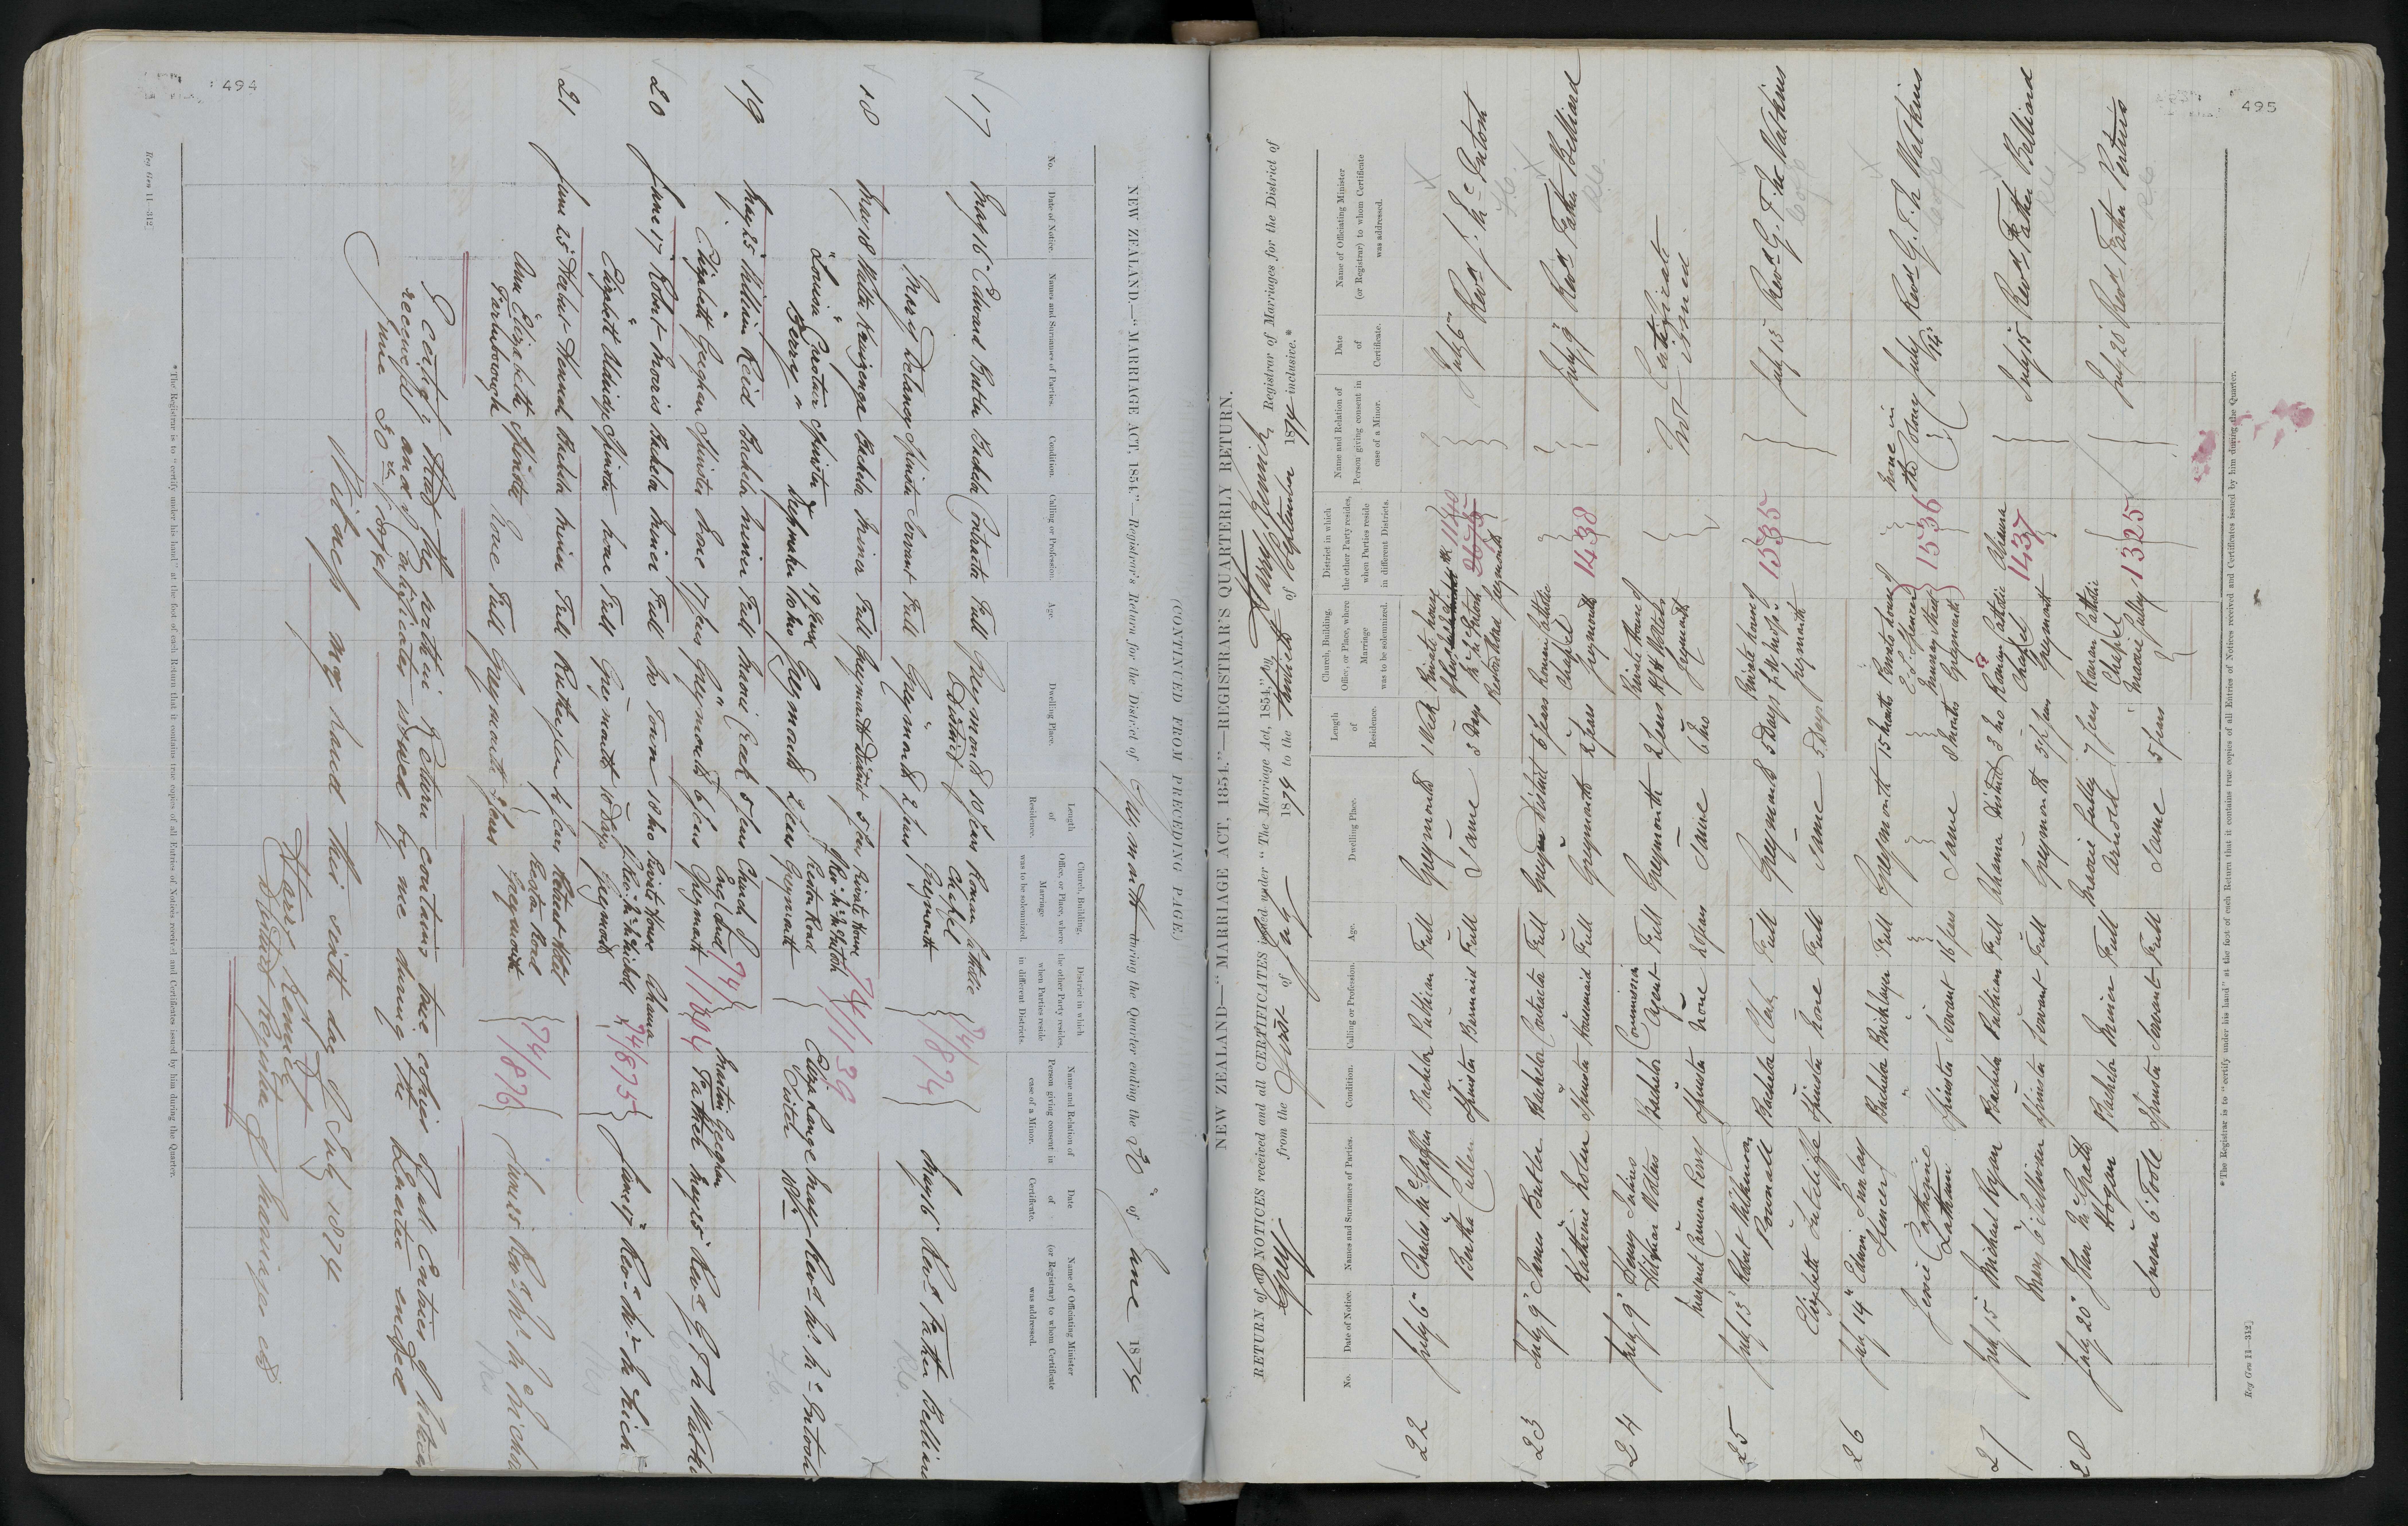 494
NEW ZEALAND.—"MARRIAGE ACT, 1854."—Registrar's Return for the District of Greymouth during the Quarter ending the 30" of June 1874
(CONTINUED FROM PRECEDING PAGE.)
No.
Date of Notice.
Names and Surnames of Parties.
Condition.
Calling or Profession.
Age.
Dwelling Place.
Length of Residence.
Church, Building, Office, or Place, where Marriage was to be solemnized.
District in which the other Party resides, when Parties reside in different Districts.
Name and Relation of Person giving consent in case of a Minor.
Date of Certificate.
Name of Officiating Minister (or Registrar) to whom Certificate was addressed.
17 May 16 Edward Butler Bachelor Contractor Full Greymouth District 10 years Roman Catholic Chapel Greymouth 74/874 May 16 Revd Father Belliard
Mary Delaney Spinster Servant Full Greymouth 2 years
18 May 18 Walter Bachelor Miner Full Greymouth District 5 years Private House 74/1139
Louisa Spinster Dressmaker 19 years Greymouth 2 years Greymouth
19 May 25 William Reid Bachelor Miner Full Maori Creek 5 years Church of England Greymouth 74/1104 Martin Geeghan Father May 25 Revd G T N Watkins
Elizabeth Geeghan Spinster None 17 years Greymouth 6 years
20 June 17 Robert Morris Bachelor Miner Full No Town Private House Greymouth Ahaura 74/875 June 17
Elizabeth Spinster None Full Greymouth 10 Days
21 June 25 Bachelor Miner Full 4 years 74/876
Ann Elizabeth Farnborough Spinster None Full Greymouth 2 years Greymouth
I certify that the within Return contains true copies of all Entries of Notices
received and Certificates issued by me during the Quarter ended
June 30th 1874
Witness my hand this sixth day of July 1874
Harry Kenrick
District Registrar of Marriages
* The Registrar is to "certify under his hand" at the foot of each Return that it contains true copies of all Entries of Notices received and Certificates issued by him during the Quarter.
Reg Gen 11—312]
495
NEW ZEALAND—"MARRIAGE ACT, 1854."—REGISTRAR'S QUARTERLY RETURN.
RETURN of all NOTICES received and all CERTIFICATES issued under "The Marriage Act, 1854," by Harry Kenrick, Registrar of Marriages for the District of
Grey from the First of July 1874 to the Thirtieth of September 1874 inclusive.*
No.
Date of Notice.
Names and Surnames of Parties.
Condition.
Calling or Profession.
Age.
Dwelling Place.
Length of Residence.
Church, Building, Office, or Place, where Marriage was to be solemnized.
District in which the other Party resides, when Parties reside in different Districts.
Name and Relation of Person giving consent in case of a Minor.
Date of Certificate.
Name of Officiating Minister (or Registrar) to whom Certificate was addressed.
22 July 6 Charles Bachelor Publican Full Greymouth 1 Week Private house 1140 July 6 Revd J. McIntosh
Bertha Cullen Spinster Barmaid Full Same 3 Days Greymouth
23 July 9 James Butler Bachelor Contractor Full Greymouth District 6 years Roman Catholic Chapel Greymouth 1438 July 9 Revd Father Belliard
Katherine Nolan Spinster Housemaid Full Greymouth 2 years
24 July 9 Henry Waters Bachelor Commission Agent Full Greymouth 2 years Private house of Waters Greymouth Not Certificate issued
Margaret Cameron Perry Spinster None 20 years Same 6 Mo
25 July 13 Robert Wilkinson Pownall Bachelor Clerk Full Greymouth 5 Days Private house of Greymouth 1535 July 13 Revd G. T. N. Watkins
Elizabeth Sutcliffe Spinster None Full Same 5 Days
26 July 14 Edwin Spencer Bachelor Bricklayer Full Greymouth 15 Months Private house of Spencer Murray Street Greymouth 1536 None in the Colony July 14 Revd G. T. N. Watkins
Jessie Catherine Latham Spinster Servant 16 years Same 8 Months
27 July 15 Michael Ryan Bachelor Publican Full Ahaura District Roman Catholic Chapel Greymouth Ahaura 1437 July 15 Revd Father Belliard
Mary O'Sullivan Spinster Servant Full Greymouth 3½ years
28 July 20 John McGrath Hogan Bachelor Miner Full Maori Gully Arnold 7 years Roman Catholic Chapel Maori Gully 1325 July 20 Revd Father
Susan O'Toole Spinster Servant Full Same 5 years
* The Registrar is to "certify under his hand" at the foot of each Return that it contains true copies of all Entries of Notices received and Certificates issued by him during the Quarter.
Reg Gen 11—312]